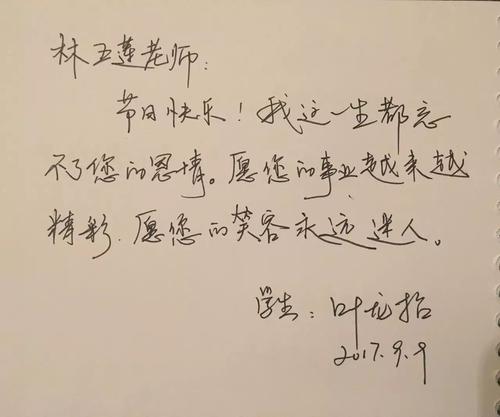 林玉莲老师:
节日快乐!我这一生都忘
不了您的恩情。愿您的事业越来越
精彩.愿您的笑容永远迷人。
学生:叶龙招
2017.9.9